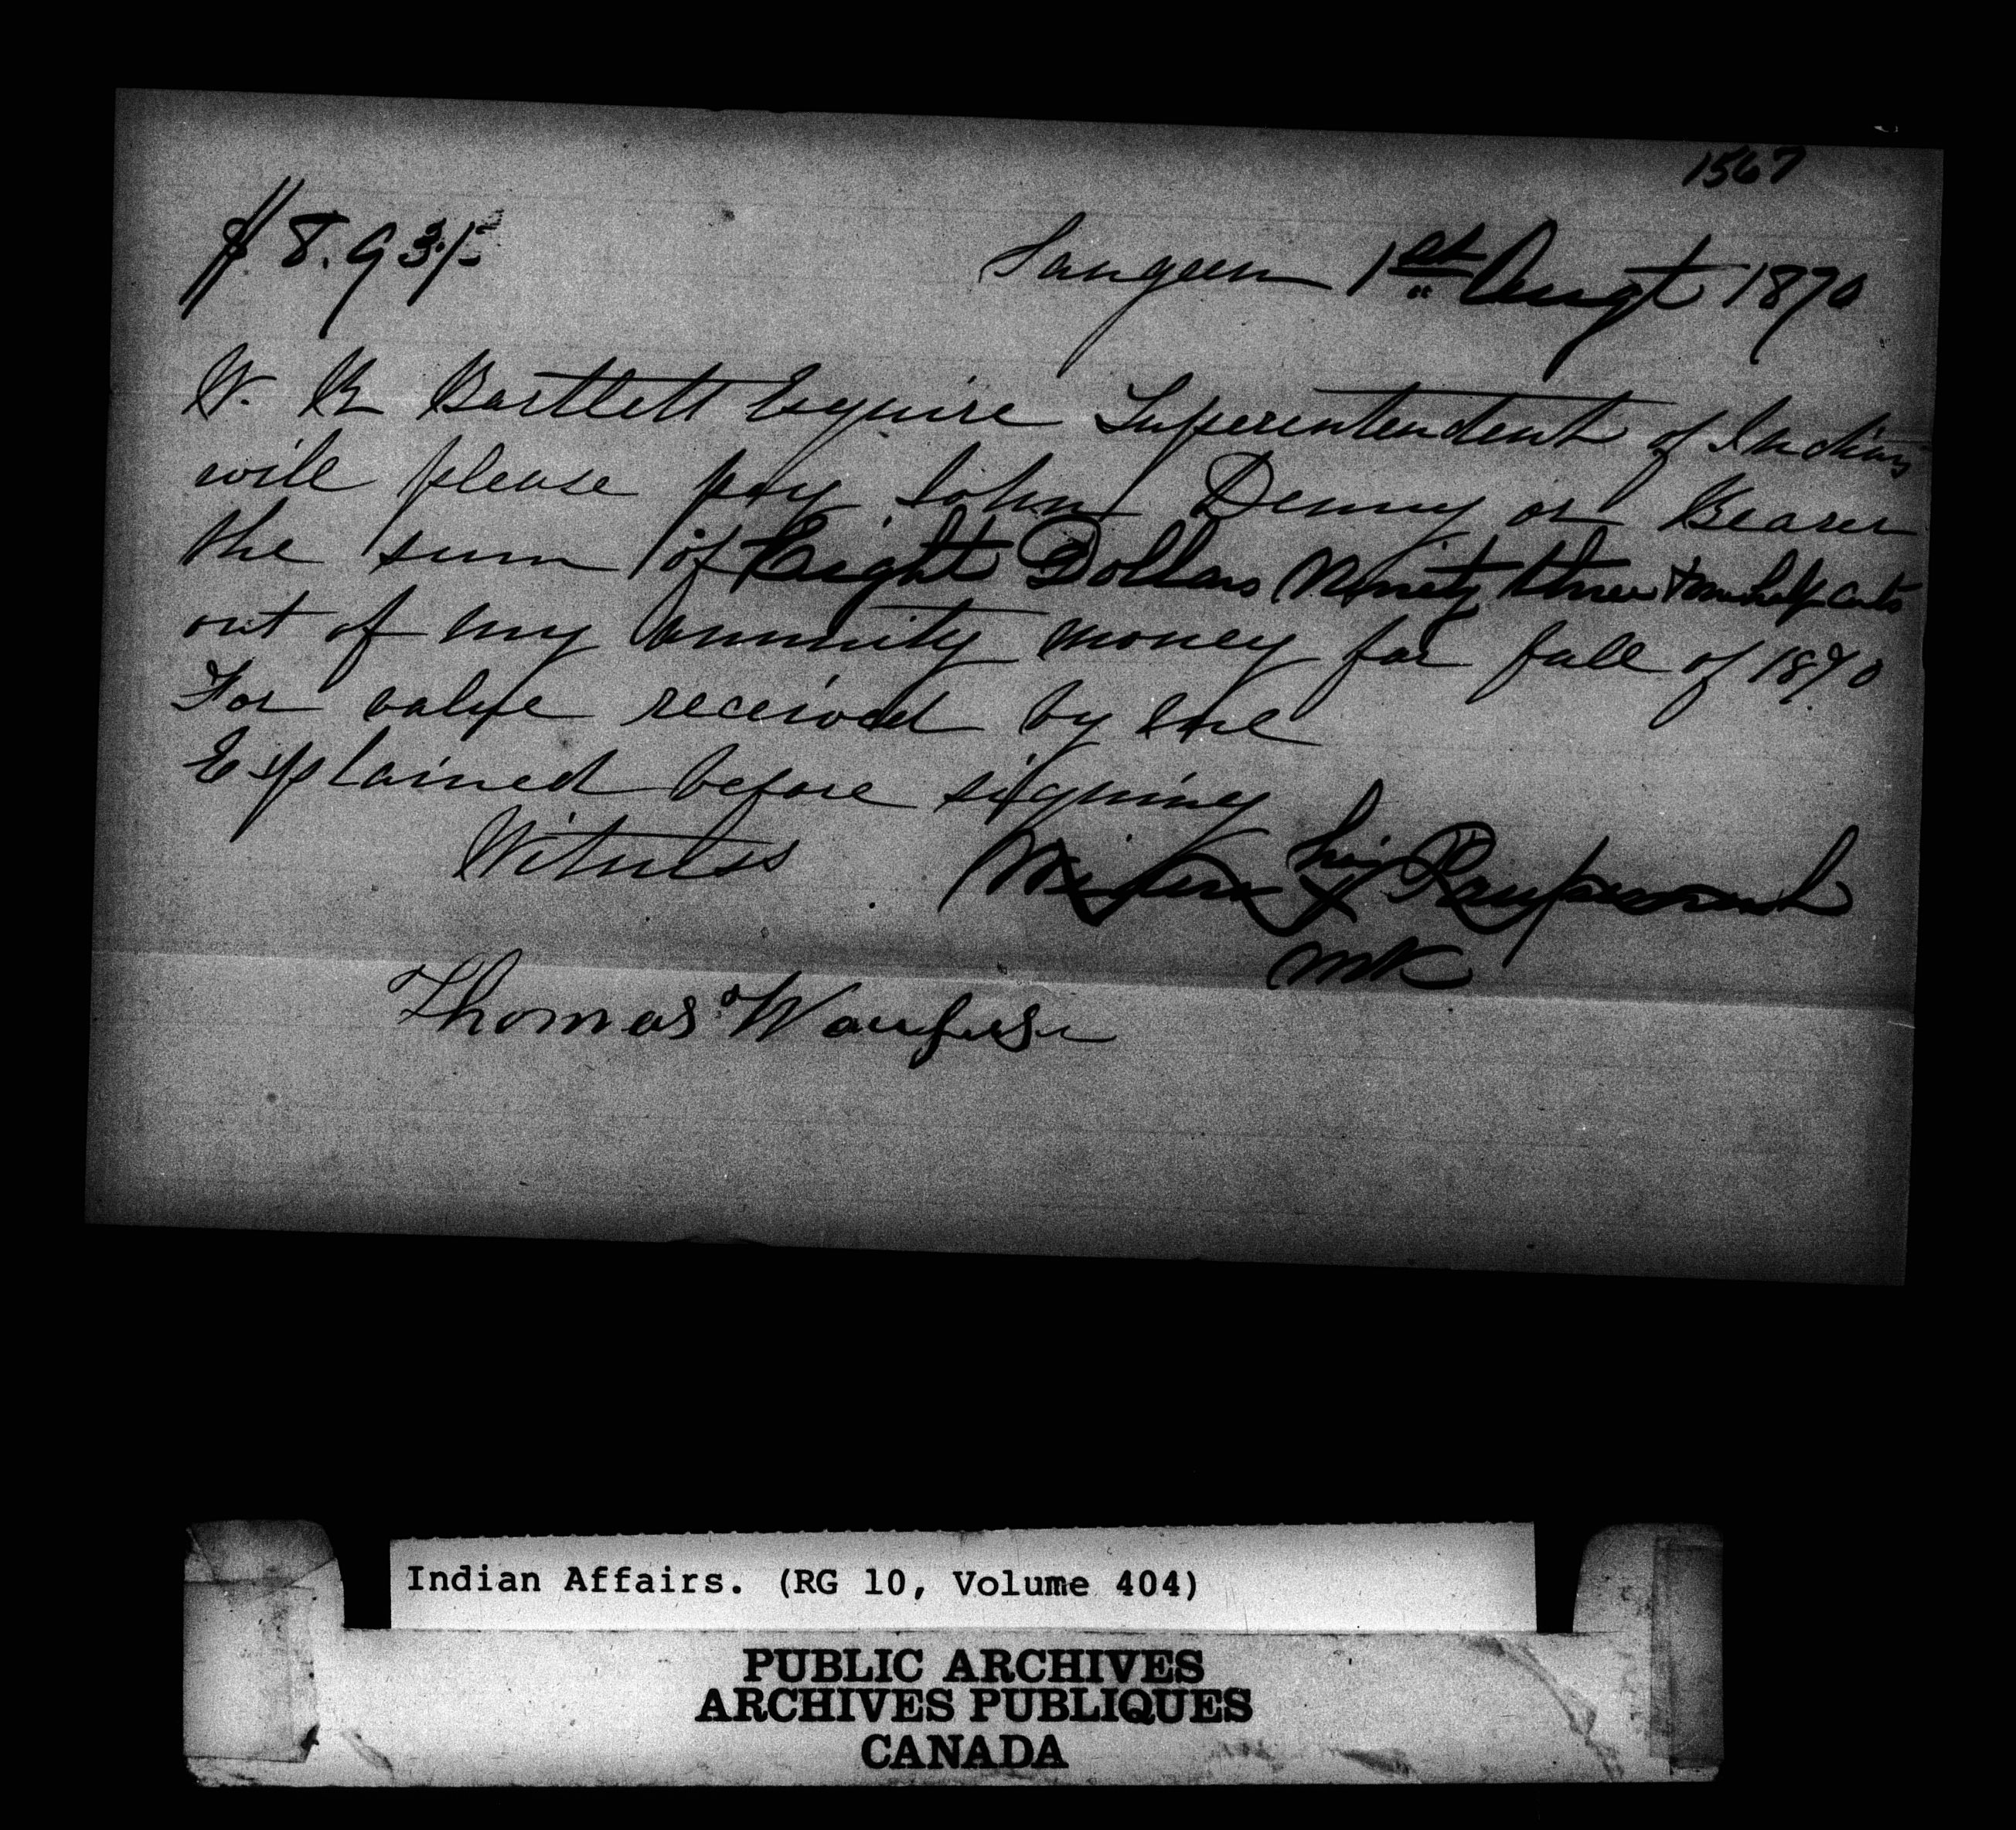 1567
$8.93½
Saugeen 1st Augt 1870
W. R Bartlett Esquire Superentendent of Indians
will please pay John Denny or Bearer
the sum of Eight Dollars Ninety three & one half cents
out of my annuity money for fall of 1870
For value received by me
Explained before signing
Witness his
X
mk
Thomas
Indian Affairs. (RG 10, Volume 404)
PUBLIC ARCHIVES
ARCHIVES PUBLIQUES
CANADA